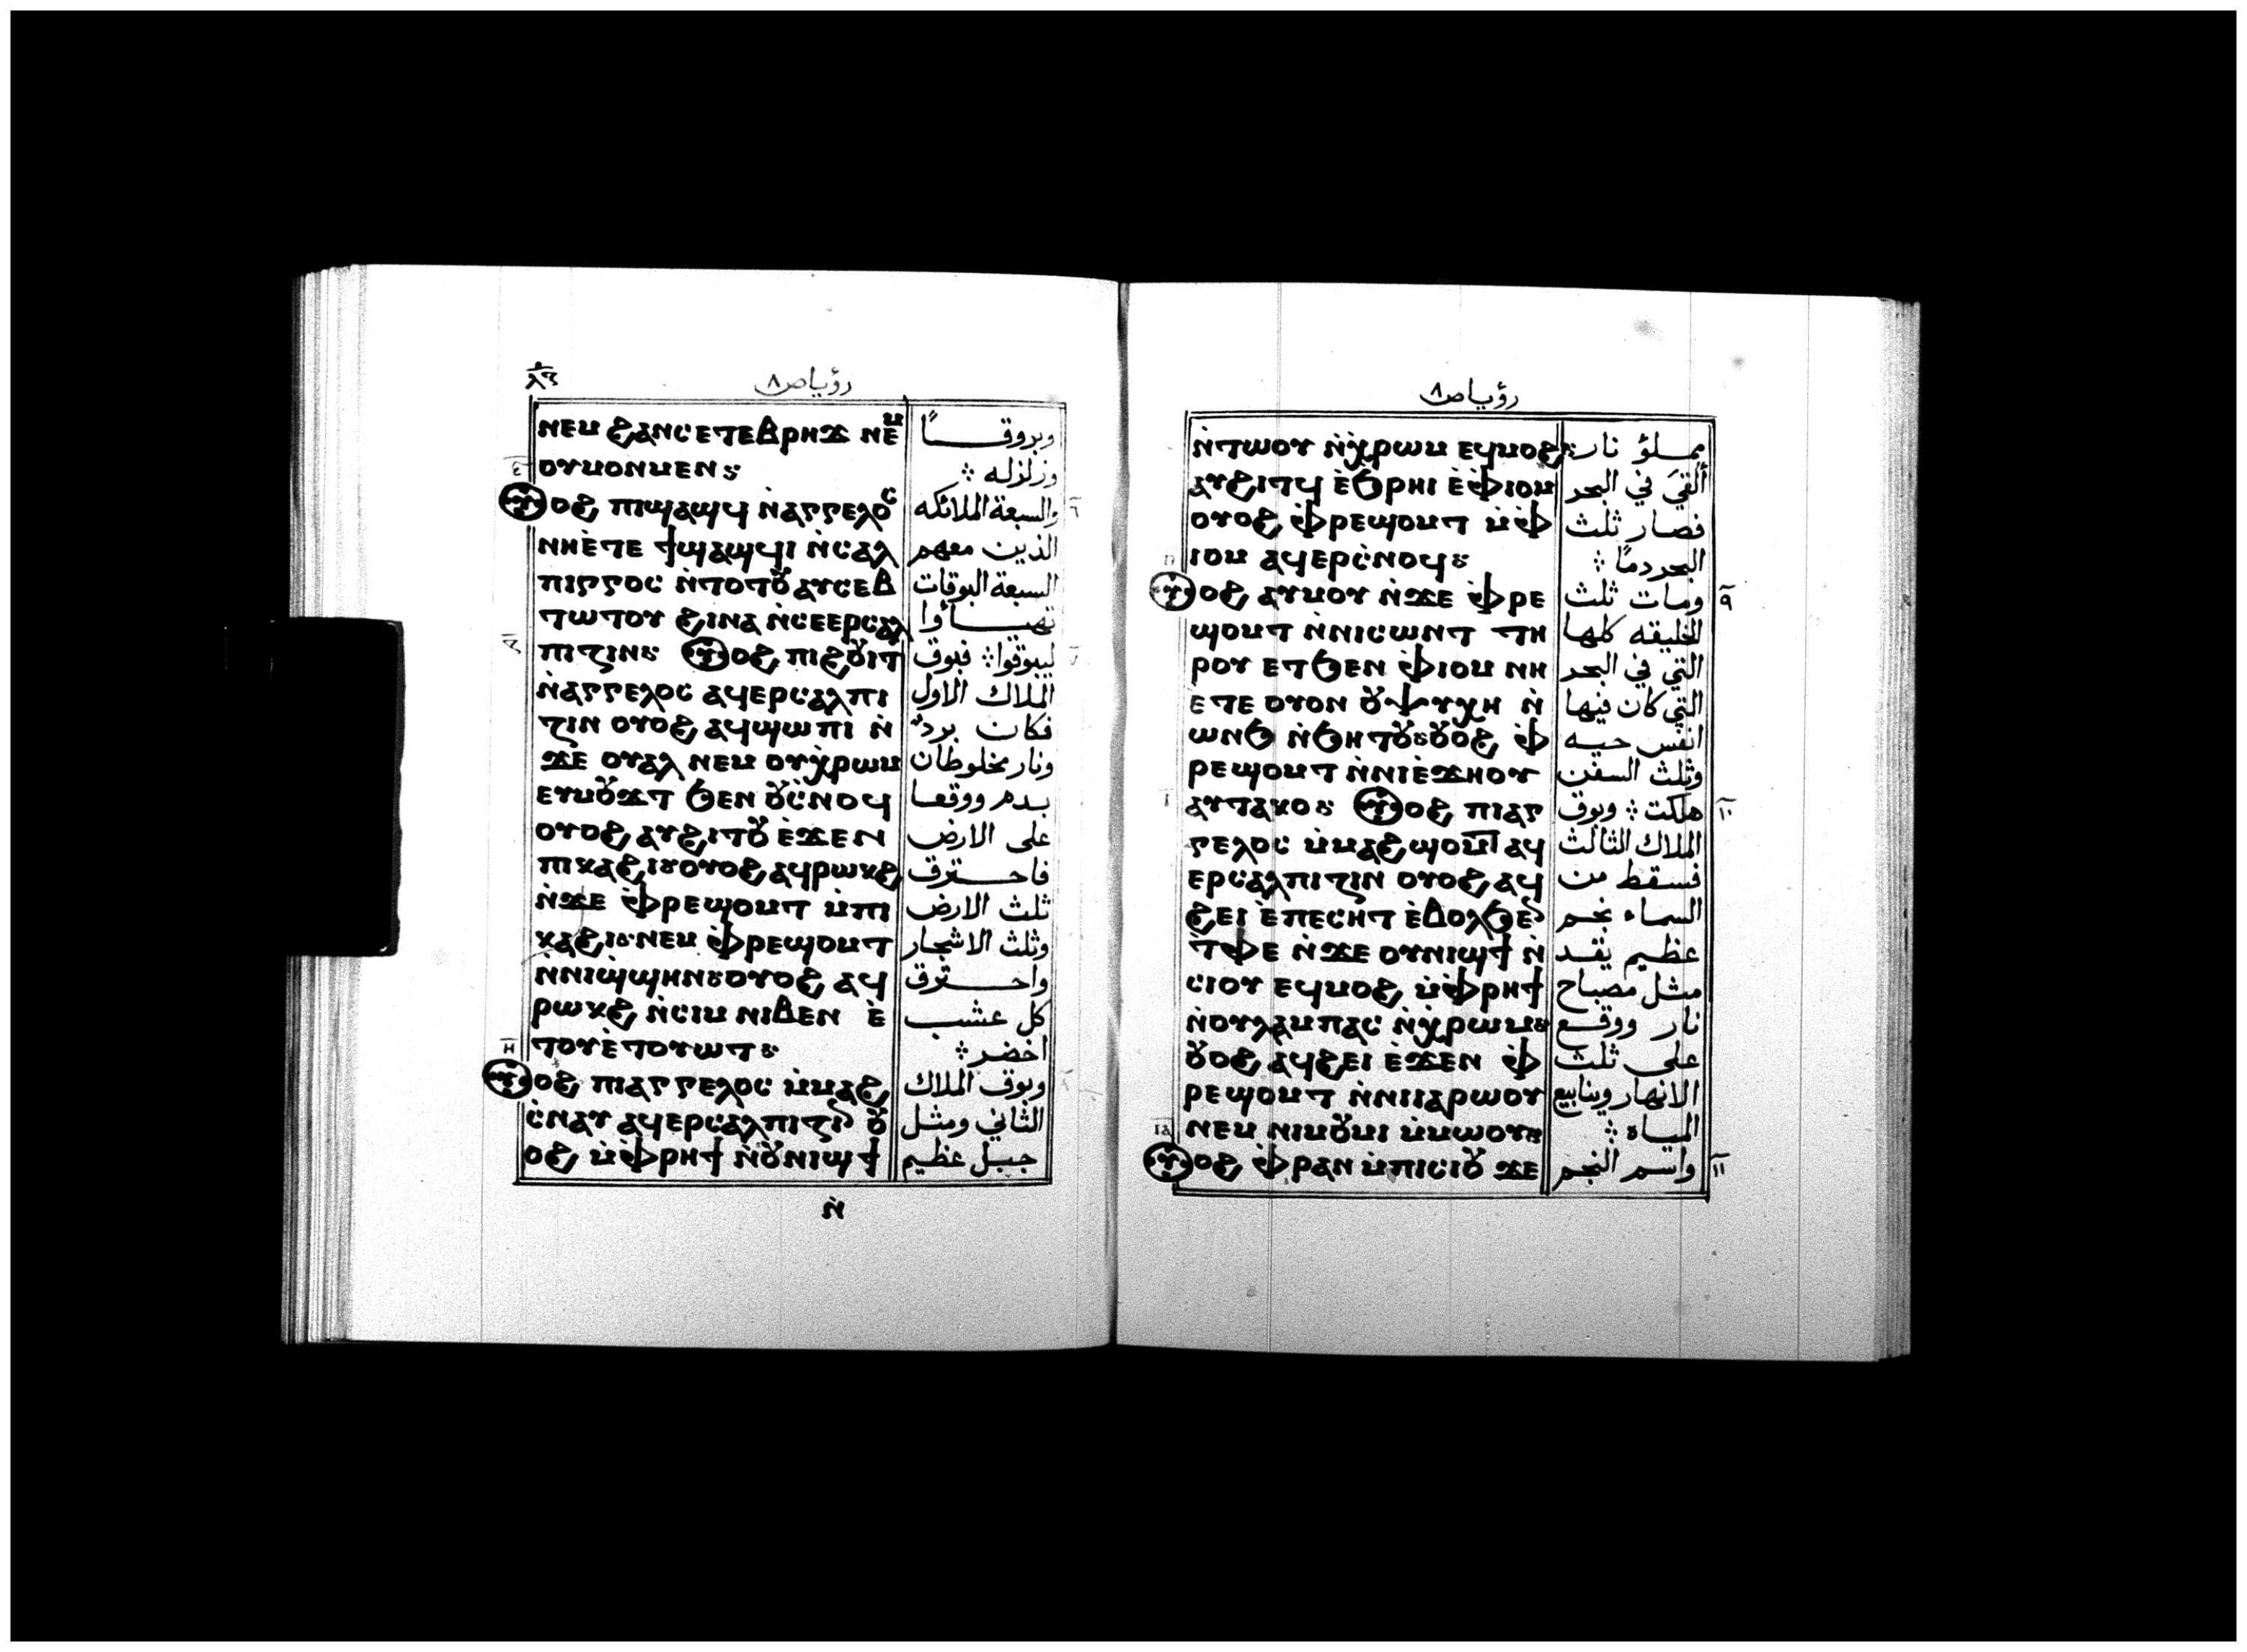 ⲗ̅ⲋ̅
رؤيا ص ٨
ⲛⲉⲙ ϩⲁⲛⲥⲉⲧⲉⲃⲣⲏϫ ⲛⲉⲙ
ⲟⲩⲙⲟⲛⲙⲉⲛ
ⲟⲩⲟϩ ⲡⲓϣⲁϣϥ ⲛ̇ⲁⲅⲅⲉⲗⲟⲥ
ⲛⲏⲉ̇ⲧⲉ ϯϣⲁϣϥⲓ ⲛ̇ⲥⲁⲗ
ⲡⲓⲅⲅⲟⲥ ⲛ̇ⲧⲟⲧⲟⲩ ⲁⲩⲥⲉⲃ
ⲧⲱⲧⲟⲩ ϩⲓⲛⲁ ⲛ̇ⲥⲉⲉⲣⲥⲁⲗ
ⲡⲓⲍⲓⲛ ⲟⲩⲟϩ ⲡⲓϩⲟⲩⲓⲧ
ⲛ̇ⲁⲅⲅⲉⲗⲟⲥ ⲁϥⲉⲣⲥⲁⲗⲡⲓ
ⲍⲓⲛ ⲟⲩⲟϩ ⲁϥϣⲱⲡⲓ ⲛ̇
ϫⲉ ⲟⲩⲁⲗ ⲛⲉⲙ ⲟⲩⲭ̇ⲣⲱⲙ
ⲉⲩⲙⲟⲩϫⲧ ϧⲉⲛ ⲟⲩⲥ̇ⲛⲟϥ
ⲟⲩⲟϩ ⲁⲩϩⲓⲧⲟⲩ ⲉ̇ϫⲉⲛ
ⲡⲓⲕⲁϩⲓ ⲟⲩⲟϩ ⲁϥⲣⲱⲕϩ
ⲛ̇ϫⲉ ⲫ̇ⲣⲉϣⲟⲙⲧ ⲙ̇ⲡⲓ
ⲕⲁϩⲓ ⲛⲉⲙ ⲫ̇ⲣⲉϣⲟⲙⲧ
ⲛ̇ⲛⲓϣ̇ϣⲏⲛ ⲟⲩⲟϩ ⲁϥ
ⲣⲱⲕϩ ⲛ̇ⲥⲓⲙ ⲛⲓⲃⲉⲛ ⲉ̇
ⲧⲟⲩⲉ̇ⲧⲟⲩⲱⲧ
ⲟⲩⲟϩ ⲡⲓⲁⲅⲅⲉⲗⲟⲥ ⲙ̇ⲙⲁϩ
ⲥ̇ⲛⲁⲩ ⲁϥⲉⲣⲥⲁⲗⲡⲓⲍⲓⲛ ⲟⲩ
ⲟϩ ⲙ̇ⲫ̇ⲣⲏϯ ⲛ̇ⲟⲩⲛⲓϣϯ
ⲛ̇
وبروقــاً
وزلزله
٦ والسبعة الملائكه
الذين معهم
السبعة البوقات
تهيــأوا
٧ ليبوقوا فبوق
الملاك الاول
فكان برد
ونار مخلوطان
بدم ووقعا
على الارض
فاحــترق
ثلث الارض
وثلث الاشجار
واحــترق
كل عشب
اخضر
٨ وبوق الملاك
الثاني ومثل
جبل عظيم
رؤيا ص ٨
ⲛ̇ⲧⲱⲟⲩ ⲛ̇ⲭ̇ⲣⲱⲙ ⲉϥⲙⲟϩ
ⲁⲩϩⲓⲧϥ ⲉ̇ϧⲣⲏⲓ ⲉ̇ⲫ̇ⲓⲟⲙ
ⲟⲩⲟϩ ⲫ̇ⲣⲉϣⲟⲙⲧ ⲙ̇ⲫ̇
ⲓⲟⲙ ⲁϥⲉⲣⲥ̇ⲛⲟϥ
ⲟⲩⲟϩ ⲁⲩⲙⲟⲩ ⲛ̇ϫⲉ ⲫ̇ⲣⲉ
ϣⲟⲙⲧ ⲛ̇ⲛⲓⲥⲱⲛⲧ ⲧⲏ
ⲣⲟⲩ ⲉⲧϧⲉⲛ ⲫ̇ⲓⲟⲙ ⲛⲏ
ⲉ̇ⲧⲉ ⲟⲩⲟⲛ ⲟⲩⲯⲩⲭⲏ ⲛ̇
ⲱⲛϧ ⲛ̇ϧⲏⲧⲟⲩ ⲟⲩⲟϩ ⲫ̇
ⲣⲉϣⲟⲙⲧ ⲛ̇ⲛⲓⲉ̇ϫⲏⲟⲩ
ⲁⲩⲧⲁⲕⲟ ⲟⲩⲟϩ ⲡⲓⲁⲅ
ⲅⲉⲗⲟⲥ ⲙ̇ⲙⲁϩϣⲟⲙⲧ ⲁϥ
ⲉⲣⲥⲁⲗⲡⲓⲍⲓⲛ ⲟⲩⲟϩ ⲁϥ
ϩⲉⲓ ⲉ̇ⲡⲉⲥⲏⲧ ⲉ̇ⲃⲟⲗϧⲉⲛ
ⲧ̇ⲫⲉ ⲛ̇ϫⲉ ⲟⲩⲛⲓϣϯ ⲛ̇
ⲥⲓⲟⲩ ⲉϥⲙⲟϩ ⲙ̇ⲫ̇ⲣⲏϯ
ⲛ̇ⲟⲩⲗⲁⲙⲡⲁⲥ ⲛ̇ⲭ̇ⲣⲱⲙ
ⲟⲩⲟϩ ⲁϥϩⲉⲓ ⲉ̇ϫⲉⲛ ⲫ̇
ⲣⲉϣⲟⲙⲧ ⲛ̇ⲛⲓⲓⲁⲣⲱⲟⲩ
ⲛⲉⲙ ⲛⲓⲙⲟⲩⲙⲓ ⲙ̇ⲙⲱⲟⲩ
ⲟⲩⲟϩ ⲫ̇ⲣⲁⲛ ⲙ̇ⲡⲓⲥⲓⲟⲩ ϫⲉ
مملؤ نار
ألقيَ في البحر
فصار ثلث
البحر دمًا
٩ ومات ثلث
الخليقه كلها
التي في البحر
التي كان فيها
انفس حيه
وثلث السفن
١٠ هلكت وبوق
الملاك الثالث
فسقط من
السماء نجم
عظيم يقد
مثل مصباح
نار ووقع
على ثلث
الانهار وينابيع
المياه
١١ واسم النجم